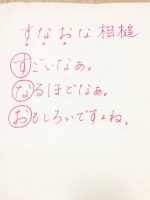 すなおな相槌
すごいなぁ。
なるほどなぁ。
おもしろいですよね。